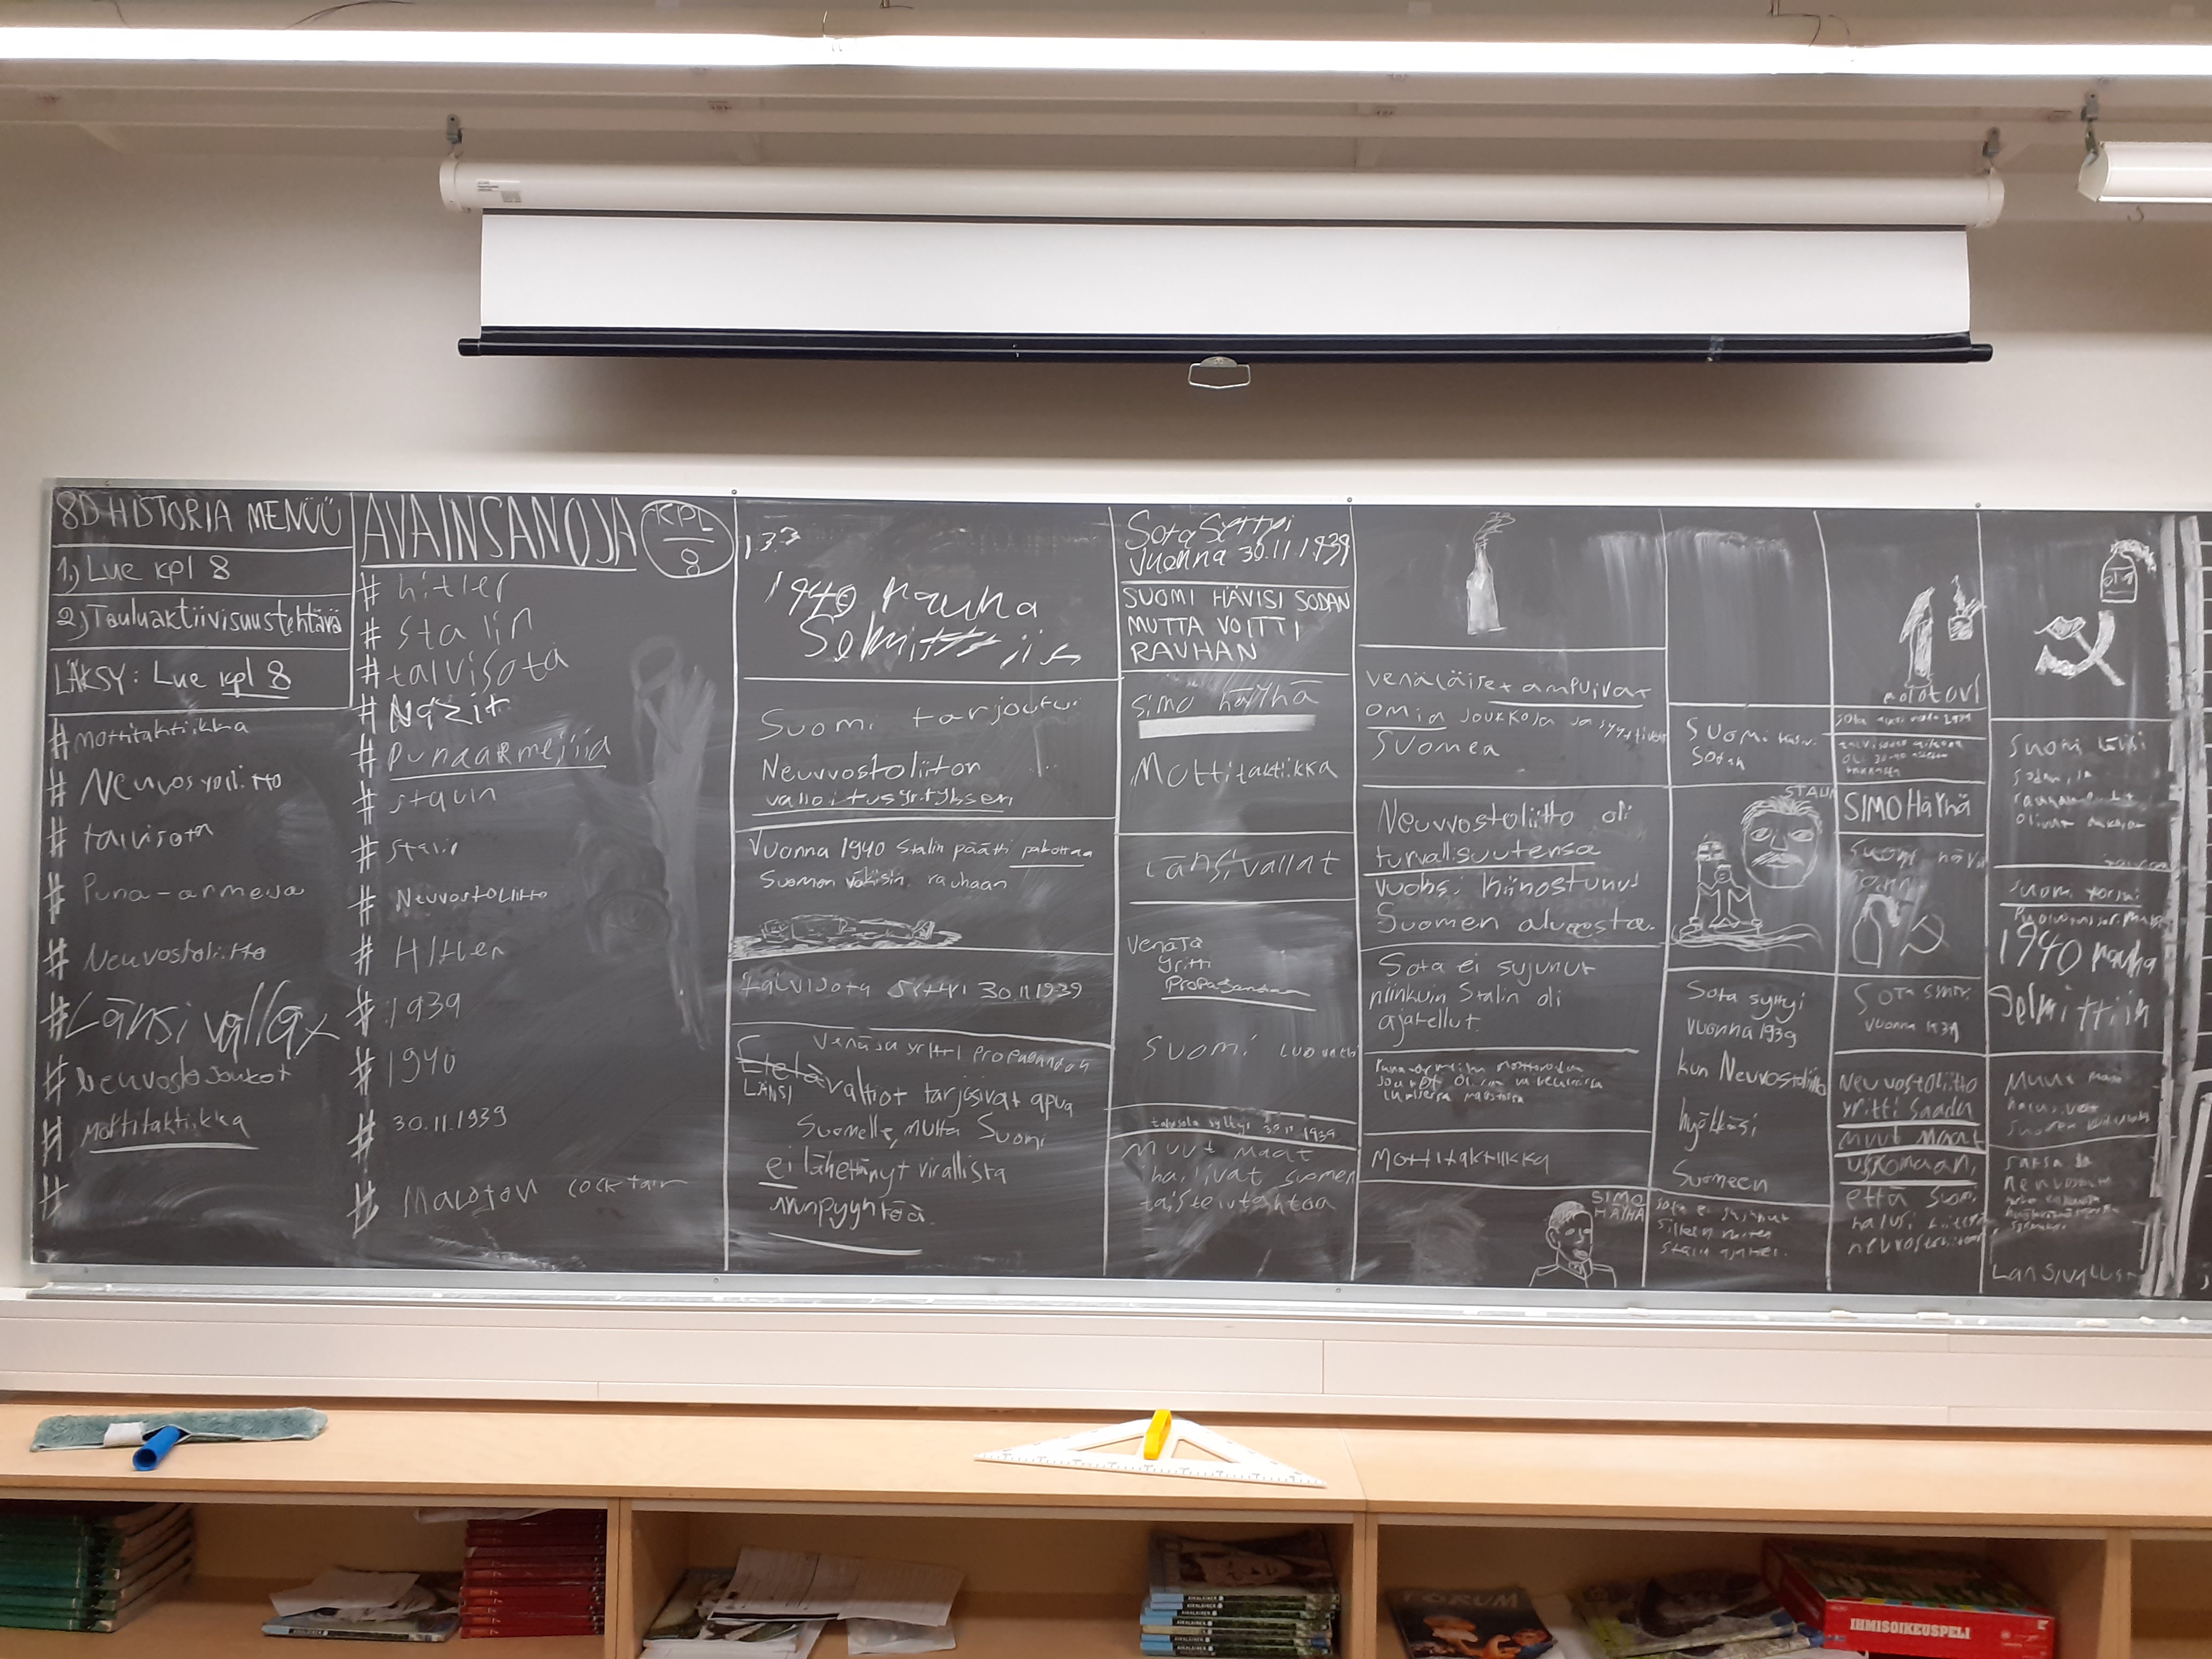 8D HISTORIA MENÜÜ
1.) Lue kpl 8
2) Tauluaktiivisuustehtävä
LÄKSY: Lue kpl 8
# mottitaktiikka
#
# talvisota
# Puna-armeija
# Neuvostoliitto
# Länsivallat
# neuvostojoukot
# mottitaktiikka
#
AVAINSANOJA
KPL
8
# hitler
# Stalin
# talvisota
# Nazit
# Punaarmeijia
#
# Stalin
# Neuvostoliitto
# Hitler
# 1939
# 1940
# 30.11.1939
# Molotov cocktail
133
1940 rauha
Solmittiin
Suomi torjoutui
Neuvvostoliiton
valloitusyrityksen
Vuonna 1940 Stalin päätti pakottaa
Suomen väkisin rauhaan
talvisota syttyi 30.11.1939
Venäjä yritti propagandaa
Etelä valtiot tarjosivat apua
LÄNSI
Suomelle, mutta Suomi
ei lähettänyt virallista
avunpyyntöä
Sota Syttyi
Vuonna 30.11.1939
SUOMI HÄVISI SODAN
MUTTA VOITTI
RAUHAN
Simo häyhä
Mottitaktiikka
Länsivallat
Venäjä
yritti
Propagandaa
Suomi
talvisota syttyi 30.11.1939
muut maat
ihailivat suomen
taistelutahtoa
venäläiset ampuivat
omia Joukkoja ja syyttivät
Suomea
Neuvvostoliitto oli
turvallisuutensa
vuoksi kiinostunut
Suomen alueesta.
Sota ei sujunut
niinkuin Stalin oli
ajatellut.
Mottitaktiikka
SIMO
HÄYHÄ
Suomi hävisi
Sodan
STALIN
Sota syttyi
vuonna 1939
kun Neuvostoliitto
hyökkäsi
Suomeen
Sota ei sujunut
stalin ajatteli.
molotovi
SIMO Häyhä
Suomi hävisi
Sota syttyi
vuonna 1939
Neuvostoliitto
yritti saada
muut maat
uskomaan,
että Suomi
halusi liittyä
Suomi hävisi
sodan, ja
1940 rauha
Solmittiin
Muut maat
Länsivallat
AIKALAINEN
AIKALAINEN
AIKALAINEN
AIKALAINEN
AIKALAINEN
FORUM
IHMISOIKEUSPELI